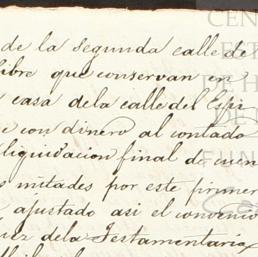 de la segunda calle de
libre que conservan en
casa dela calle del Espi
e con dinero al contado
liquidacion final de cuen
s mitades por este primer
ajustado asi el convenio
uez dela Testamentaria,
CEN
EST
DE H
DE
FUN